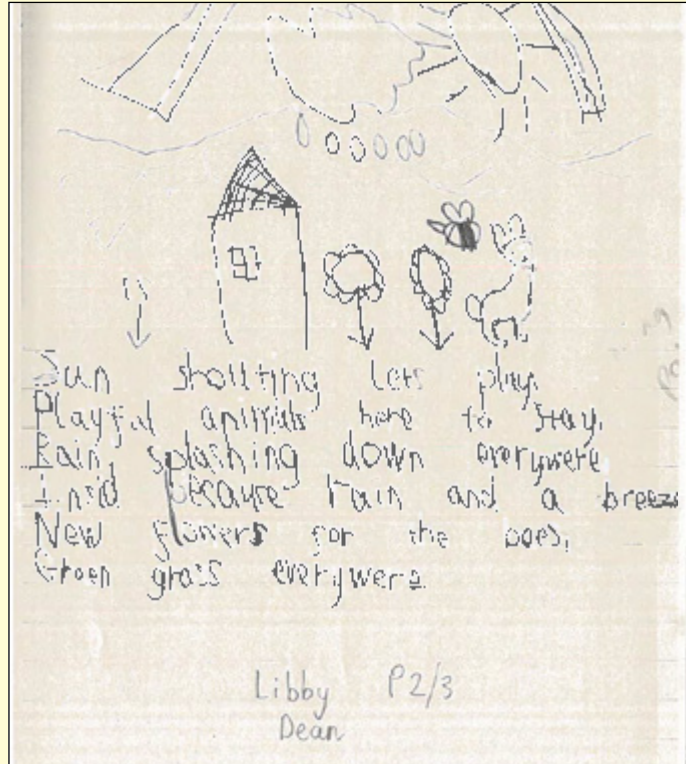 Sun shouting Lets play.
Playful animals here to stay.
Rain, splashing down everywere
Insid because rain and a breeze
New flowers for the bees,
Green grass everywere.
Libby P2/3
Dean